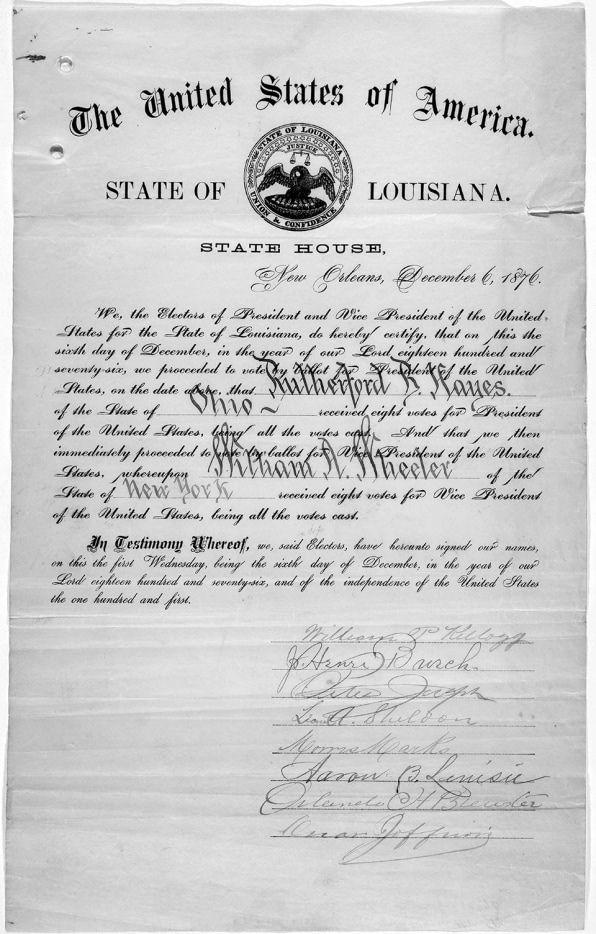 The United States of America.
STATE OF LOUISIANA
JUSTICE
UNION & CONFIDENCE
STATE OF LOUISIANA.
STATE HOUSE,
New Orleans, December 6, 1876.
We, the Electors of President and Vice President of the United
States for the State of Louisiana, do hereby certify, that on this the
sixth day of December, in the year of our Lord eighteen hundred and
seventy-six, we proceeded to vote by ballot for President of the United
States, on the date above, that Rutherford B. Hayes.
of the State of Ohio received eight votes for President
of the United States, being all the votes cast. And that we then
immediately proceeded to vote by ballot for Vice President of the United
States, whereupon William A. Wheeler of the
State of New York received eight votes for Vice President
of the United States, being all the votes cast.
In Testimony Whereof, we, said Electors, have hereunto signed our names,
on this the first Wednesday, being the sixth day of December, in the year of our
Lord eighteen hundred and seventy-six, and of the independence of the United States
the one hundred and first.
William P. Kellogg
J. Henri Burch.
Peter Joseph
L. A. Sheldon
Morris Marks
Aaron B. Levisee
Orlando H. Brewster
Oscar Joffrion